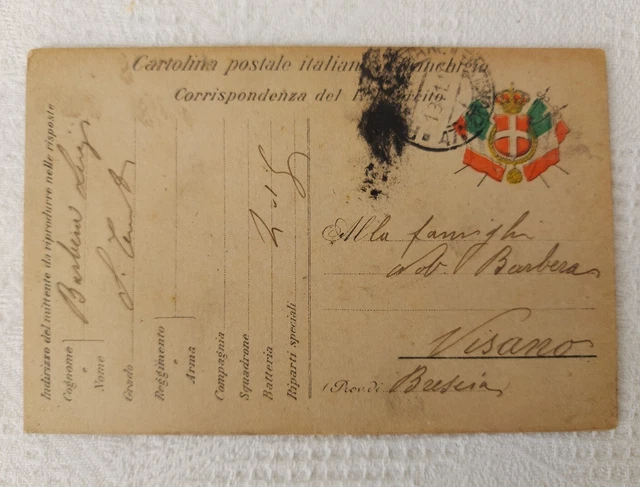 Cartolina postale italiana in franchigia
Corrispondenza del R. Esercito
13.
Alla famiglia
Barbera
Visano
(Prov. di Brescia
Indirizzo del mittente da riprodurre nelle risposte
Cognome Barbera Luigi
e
Nome
Grado
Reggimento
e
Arma
Compagnia
Squadrone
Batteria
Riparti speciali